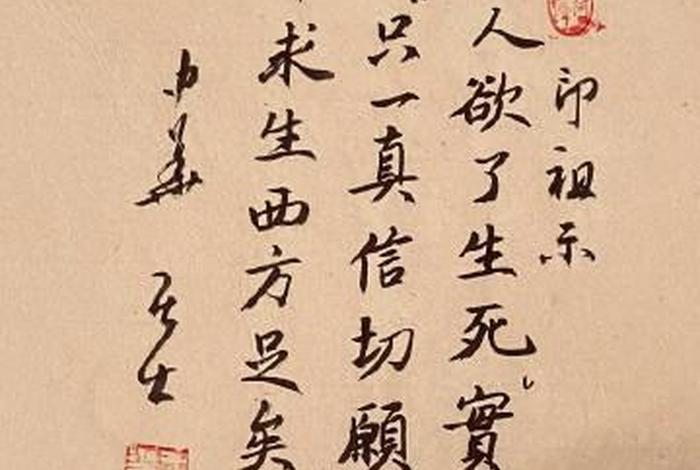 印祖示
人欲了生死實
只一真信切願
求生西方足矣
居士